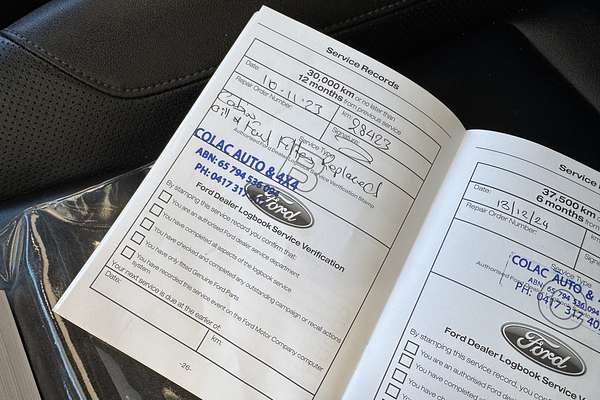 Service Records
30,000 km or no later than
12 months from previous service
Date: 10.11.23
km: 28423
Repair Order Number:
Signature:
Cabin
Oil & Fuel Filter Replaced
Service Type
Authorised Ford Dealer Logbook Service Verification Stamp
COLAC AUTO & 4X4
ABN: 65 794 536 094
PH: 0417 317
Ford
Ford Dealer Logbook Service Verification
By stamping the service record you confirm that:
You are an authorised Ford dealer service department
You have completed all aspects of the logbook service
You have checked and completed any outstanding campaign or recall actions
You have only fitted Genuine Ford Parts
You have recorded this service event on the Ford Motor Company computer
system.
Your next service is due at the earlier of:
Date:
km:
-26-
Service
37,500 km
6 months
Date: 13/12/24
Repair Order Number:
Service Type
Authorised Ford
COLAC AUTO &
ABN: 65 794 536 094
PH: 0417 317 40
Ford
Ford Dealer Logbook Service
By stamping this service record, you
You are an authorised Ford
You have completed
You have